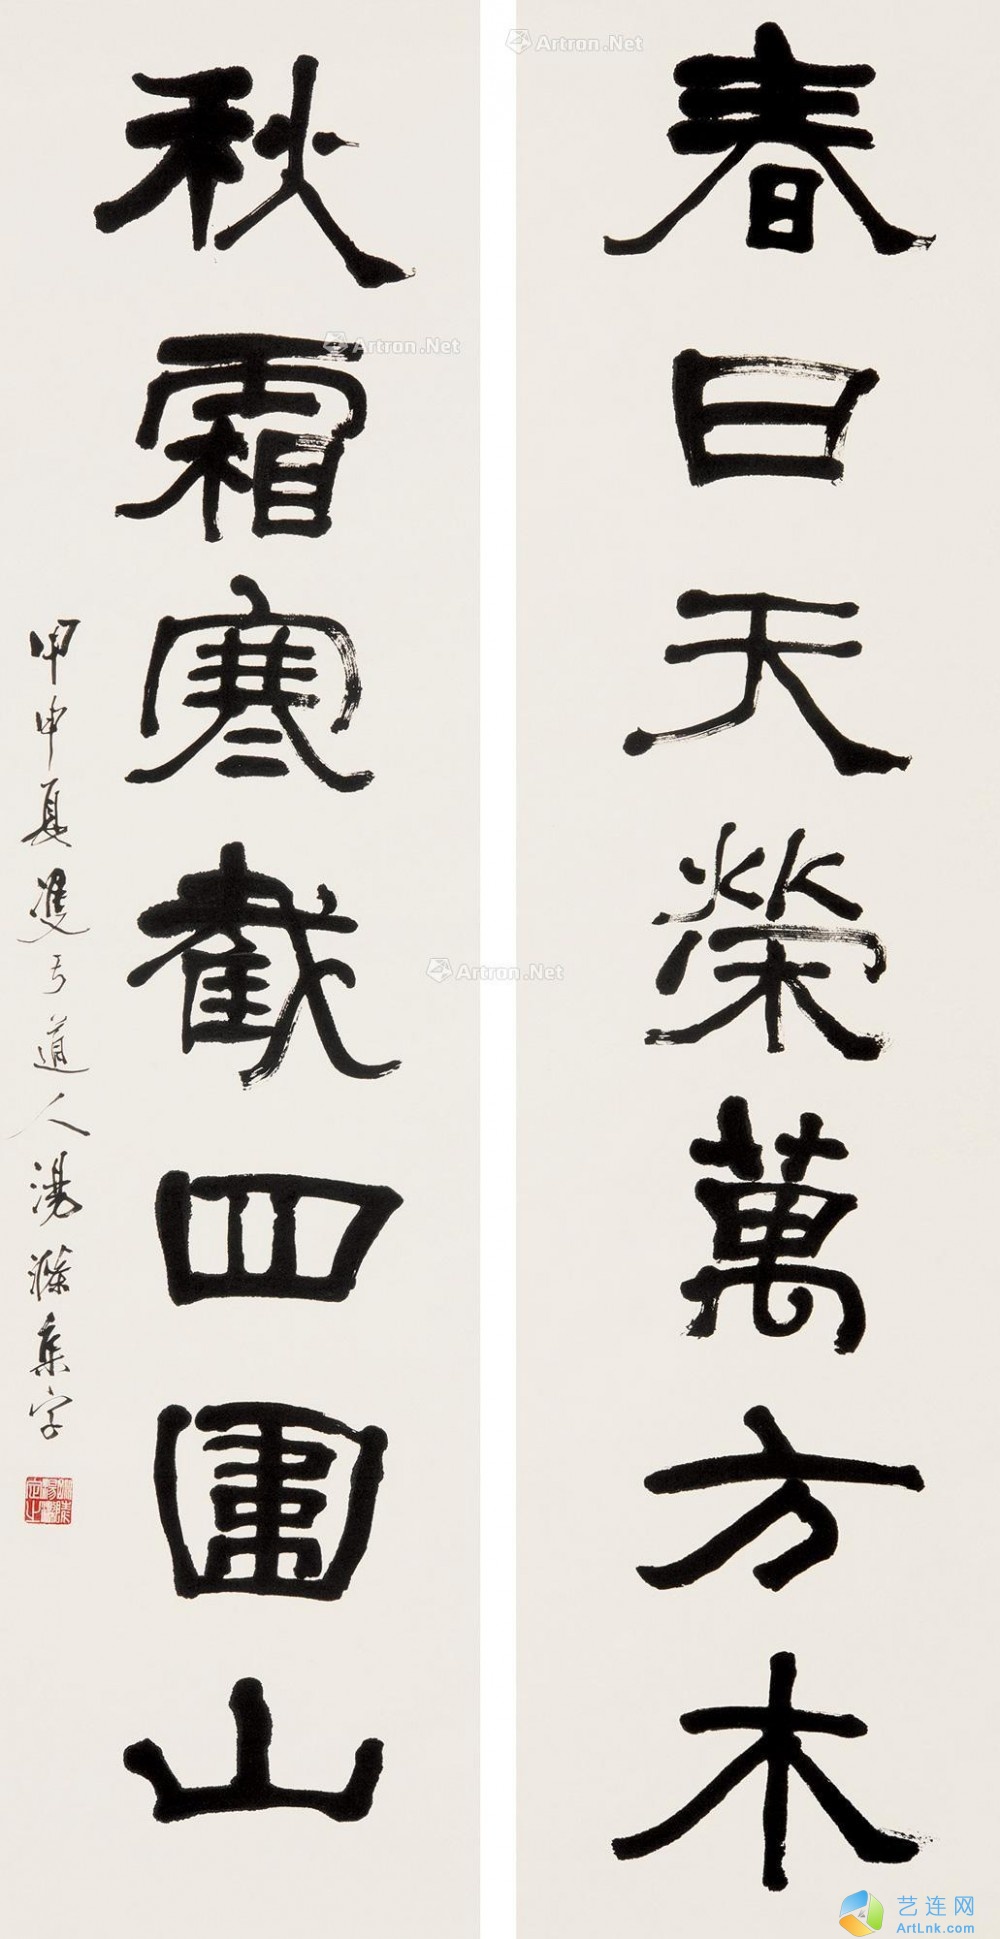 春日天榮萬方木
秋霜寒截四圍山
甲申夏雙于道人湯滌集字
Artron.Net
Artron.Net
Artron.Net
艺连网
ArtLnk.com